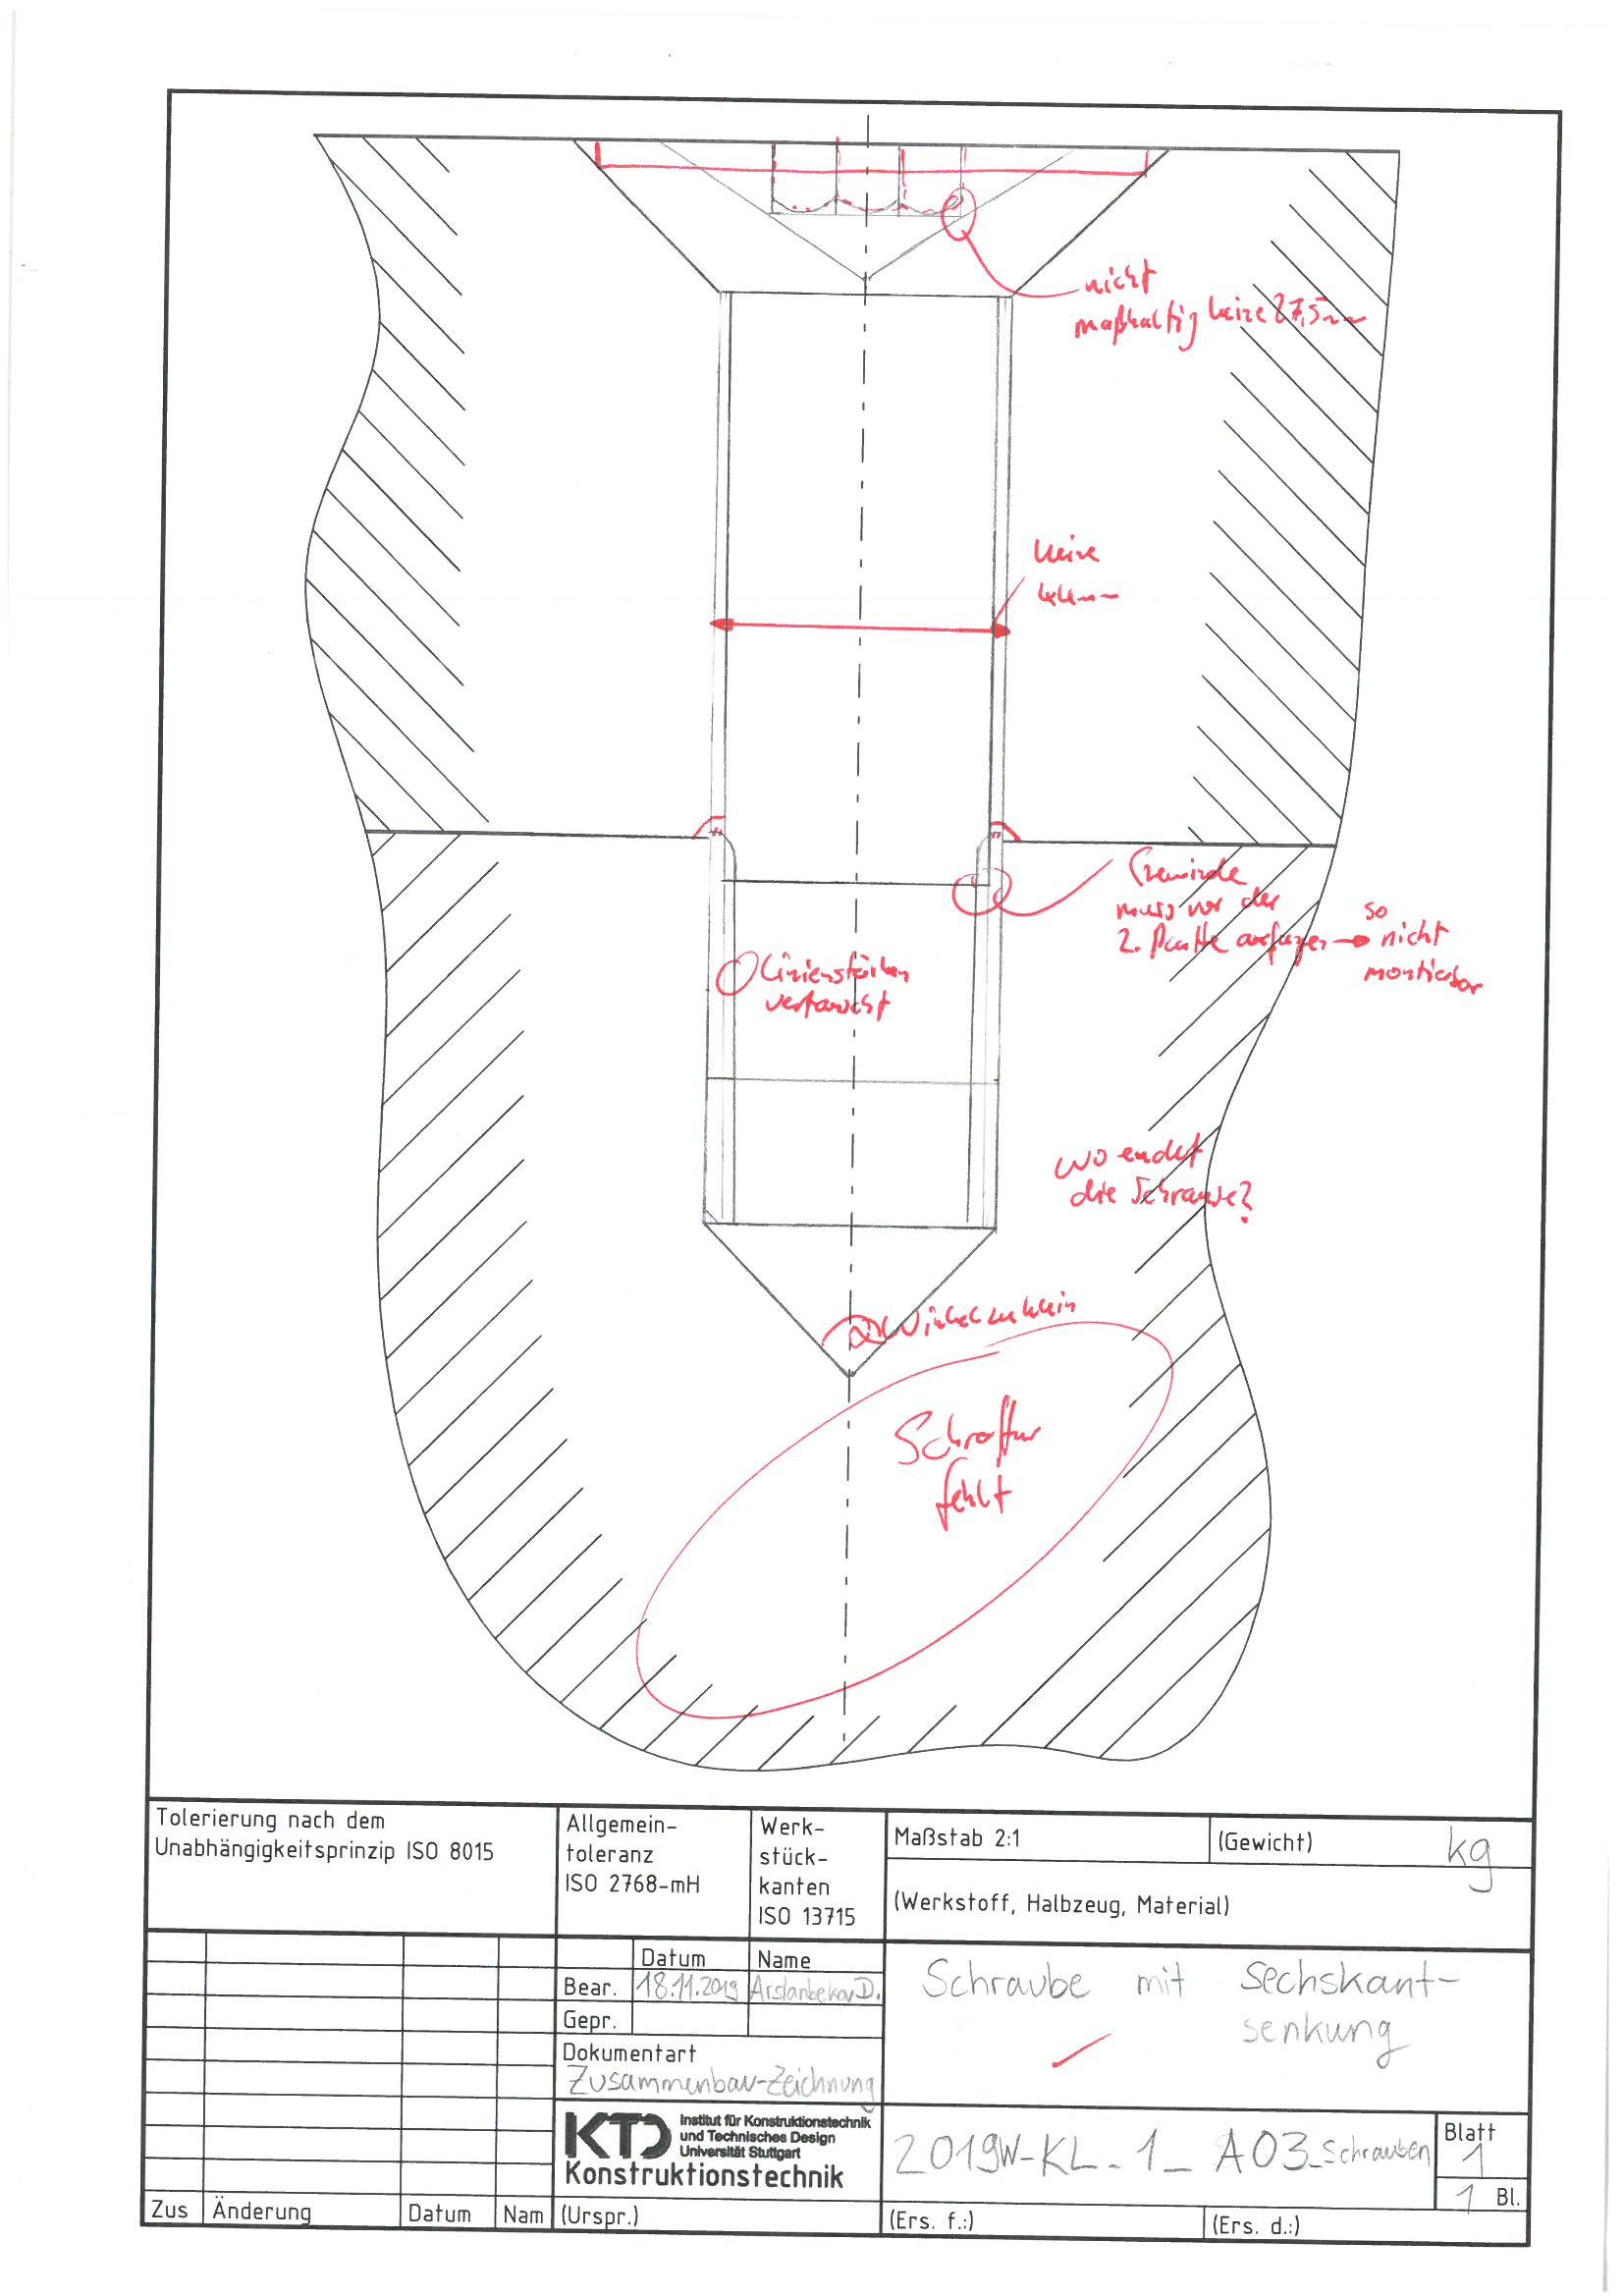 nicht
maßhaltig keine 27,5mm
keine
44mm
Gewinde
muss vor der
2. Platte anfangen → so nicht montierbar
Linienstärken
vertauscht
wo endet
die Schraube?
Winkel zu klein
Schraffur
fehlt
Tolerierung nach dem
Unabhängigkeitsprinzip ISO 8015
Allgemein-
toleranz
ISO 2768-mH
Werk-
stück-
kanten
ISO 13715
Maßstab 2:1
(Gewicht) kg
(Werkstoff, Halbzeug, Material)
Datum Name
Bear. 18.11.2019 Arslanbekov D.
Gepr.
Dokumentart
Zusammenbau-Zeichnung
Schraube mit Sechskant-
senkung
KTD Institut für Konstruktionstechnik
und Technisches Design
Universität Stuttgart
Konstruktionstechnik
2019W-KL_1_A03_Schrauben
Blatt
1
1 Bl.
Zus Änderung Datum Nam (Urspr.) (Ers. f.:) (Ers. d.:)